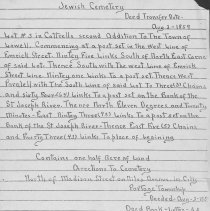 Jewish Cemetery
Deed Transfer Date -
Aug 2-1859
Lot #3 in Cottrells second Addition To The Town of
Lowell. Commencing at a post set in the West line of
Emrick Street Ninety Five Links South of North East Corner
of said Lot. Thence South with the West line of Emrick
Street line. Ninety one Links To a post set. Thence West
Paralell with The South line of said Lot To Three (3) Chains
and sixty Four (64) Links To a post set on the Bank of the
St Joseph River. Thence North Eleven Degrees and Twenty
Minutes - East Ninety Three (93) Links To a post set on the
Bank of the St Joseph River - Thence East Five (5) Chains
and Forty Three (43) Links To place of begining
Contains one half Acre of Land
Directions To Cemetery
North of Madison Street on
Portage Township
Deeded - Aug - 2 - 1859
Deed Book - Letter -